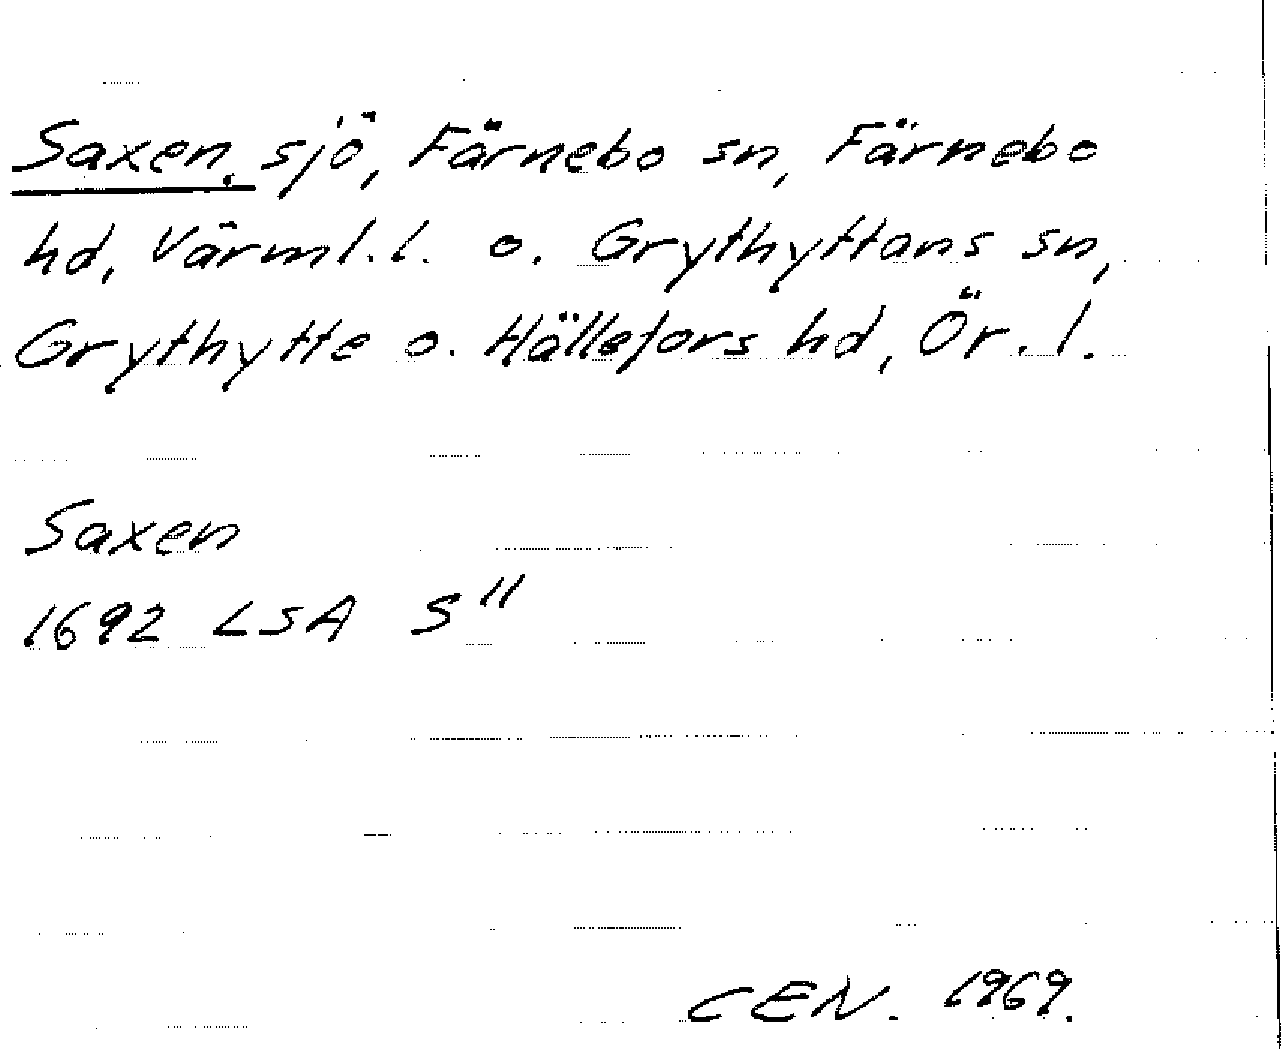 Saxen, sjö, Färnebo sn, Färnebo
hd, Värml. l. o. Grythyttans sn,
Grythytte o. Hällefors hd, Ör. l.
Saxen
1692 LSA S"
CEN. 1969.